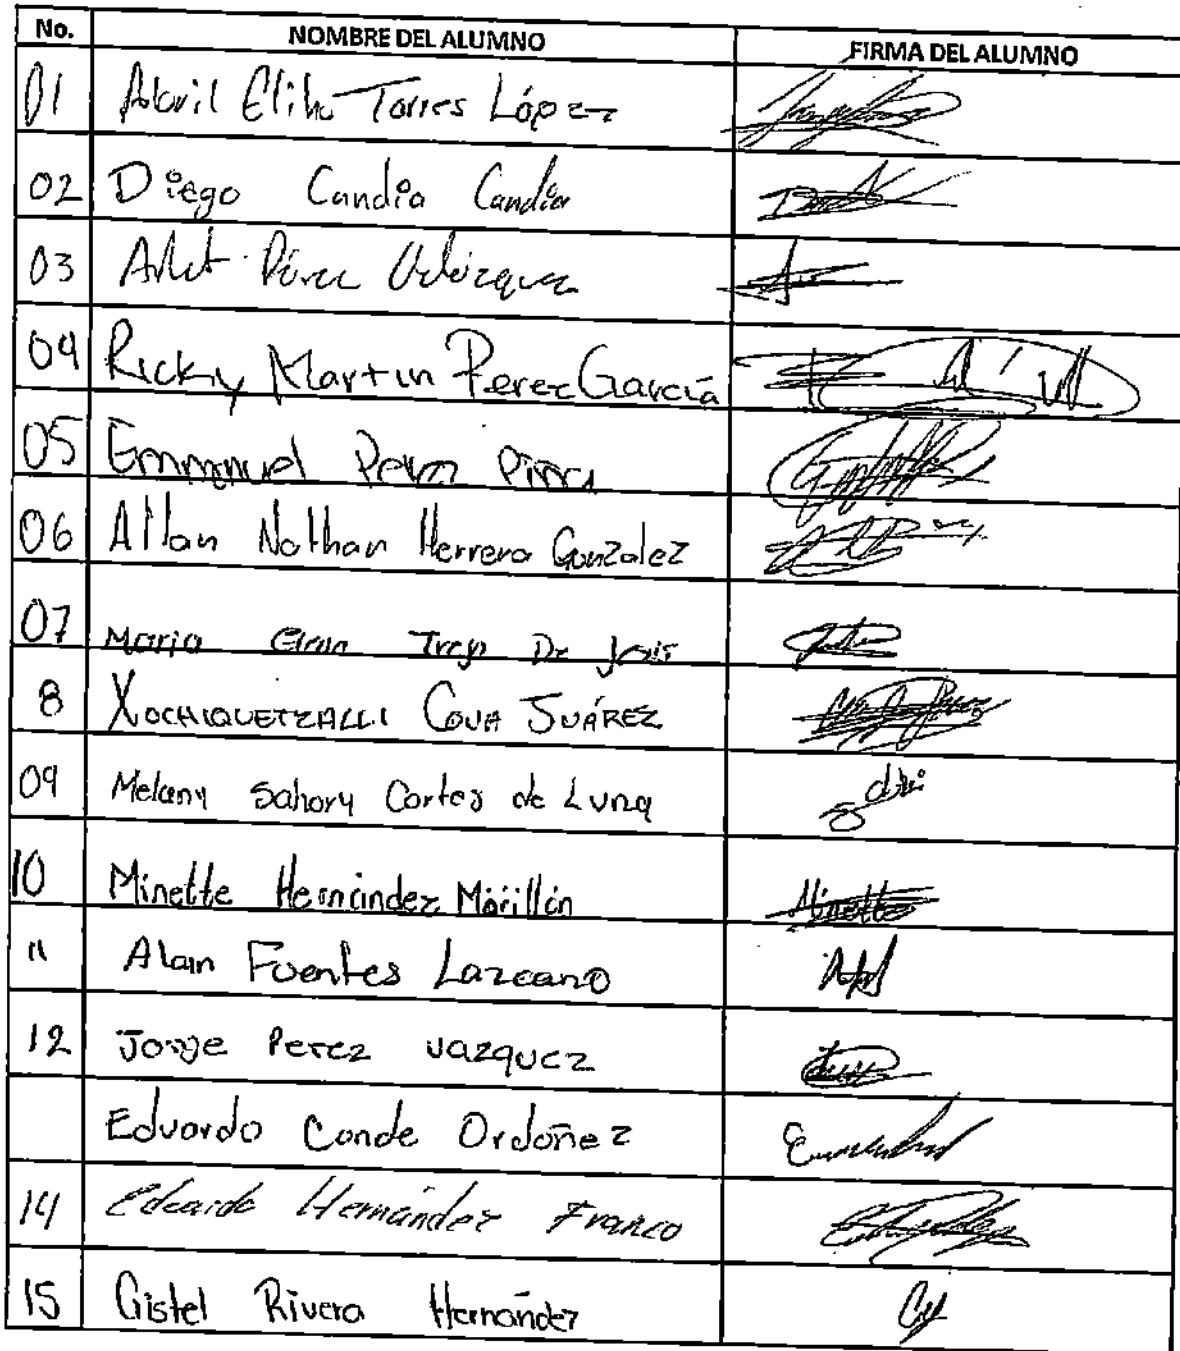 No. NOMBRE DEL ALUMNO FIRMA DEL ALUMNO
01 Abril Torres López
02 Diego Candia Candia
03 Arlet Pérez Velázquez
04 Ricky Martin Perez García
05 Emmanuel Perez
06 Allan Nathan Herrera Gonzalez
07 Maria De Jesús
8 XOCHIQUETZALLI COVA JUÁREZ
09 Melany Sahory Cortes de Luna
10 Minette Hernández Morillón Minette
11 Alain Fuentes Lazcano
12 Jorge Perez Vazquez
Eduardo Conde Ordoñez
14 Eduardo Hernández Franco
15 Gistel Rivera Hernández